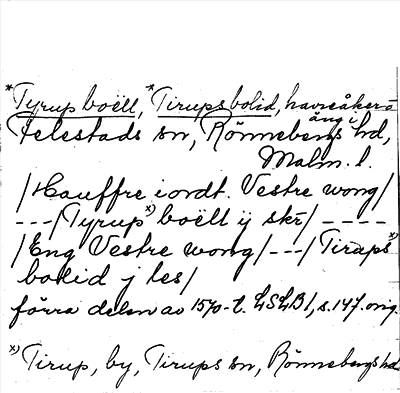 *Tyrup boëll, *Tirups bolid, havreåker o
äng i
Felestads sn, Rönnebergs hd,
Malm. l.
/Hauffre iordt. Vestre wong/
---/Tyrup x) boëll ij skr/ ----
/Eng Vestre wong/---/Tiraps x)
bolid j les/
förra delen av 1570-t. LSLB1, s. 147. orig.
x) Tirup, by, Tirups sn, Rönnebergs hd